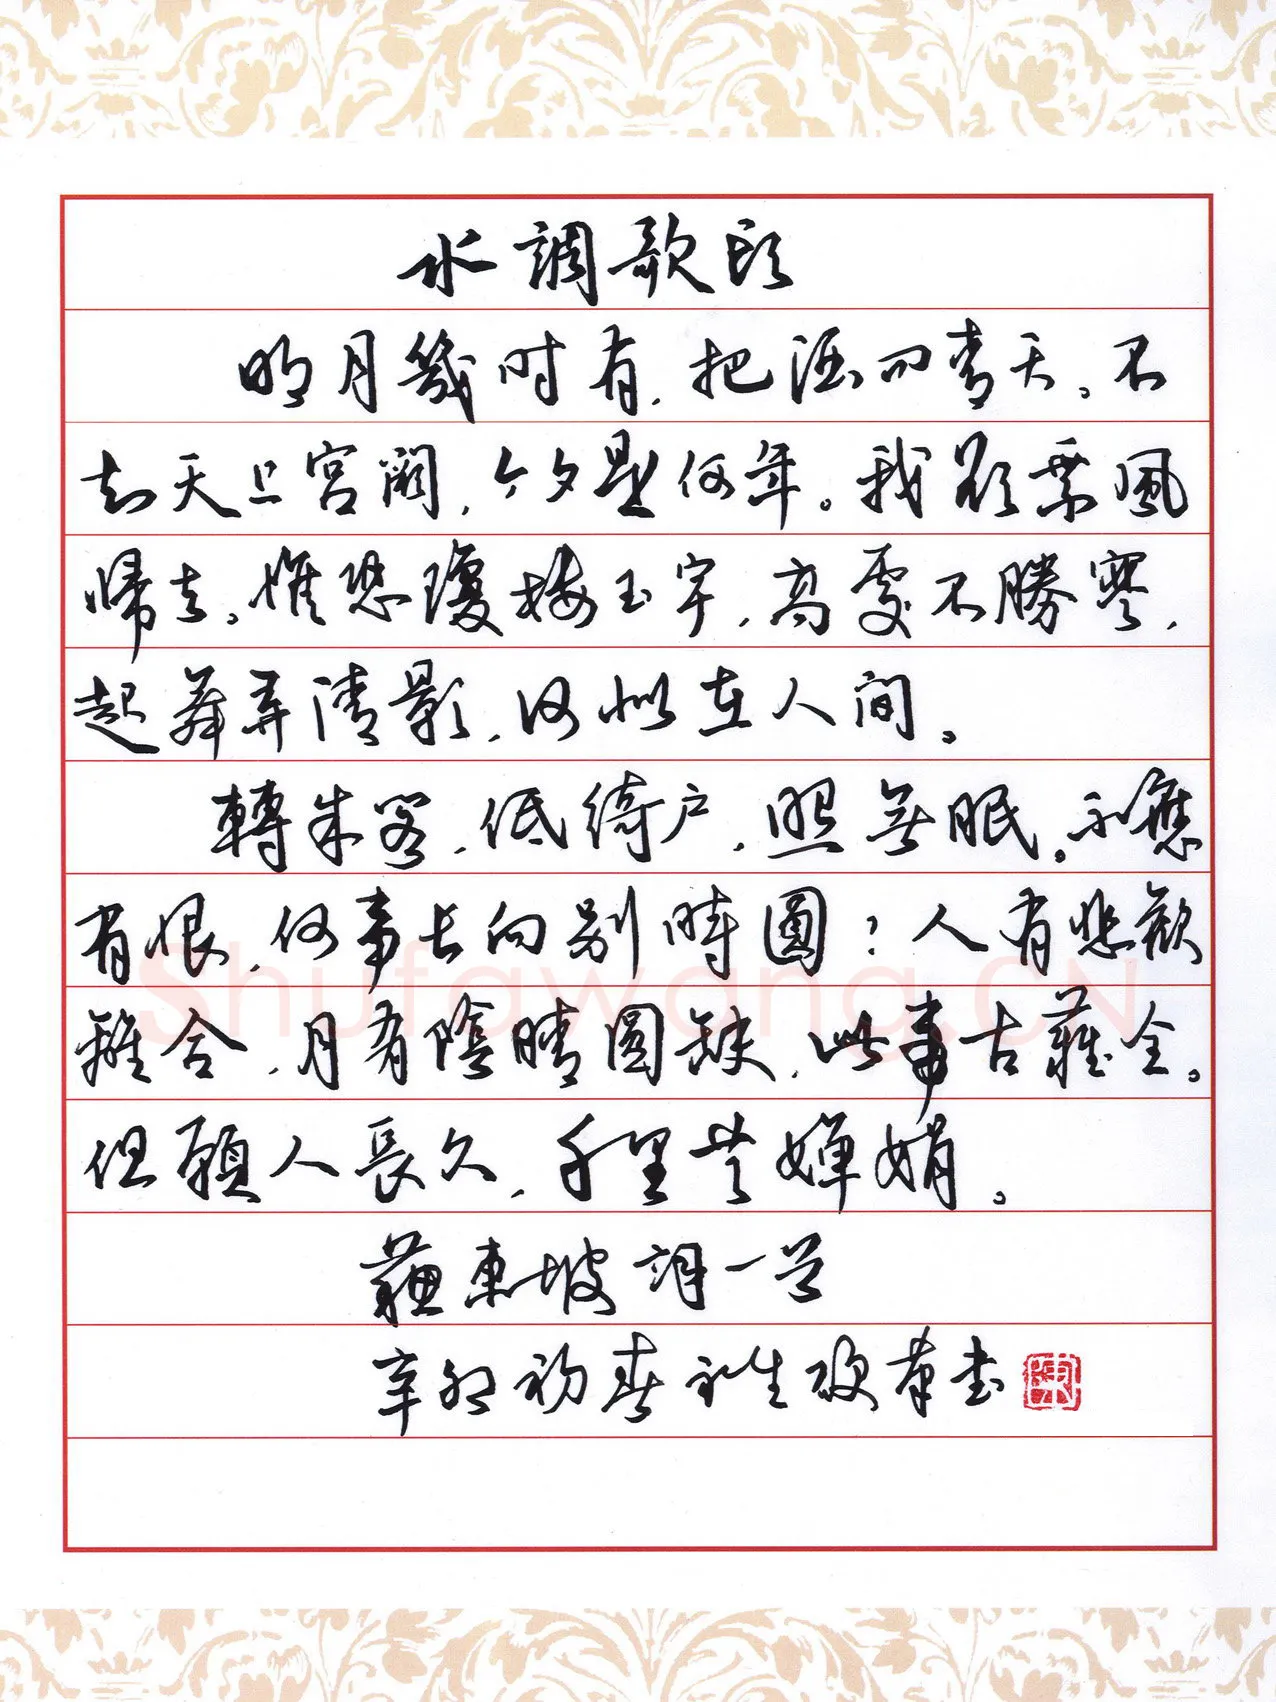 水調歌頭
明月幾时有,把酒问青天。不
知天上宫阙,今夕是何年。我欲乘風
歸去。惟恐瓊楼玉宇,高處不勝寒,
起舞弄清影,何似在人间。
轉朱阁,低綺户,照無眠。不應
有恨,何事长向别時圆?人有悲歡
離合,月有陰晴圆缺,此事古難全。
但願人長久,千里共嬋娟。
蘇東坡詞一首
辛卯初春
Shufawang.CN